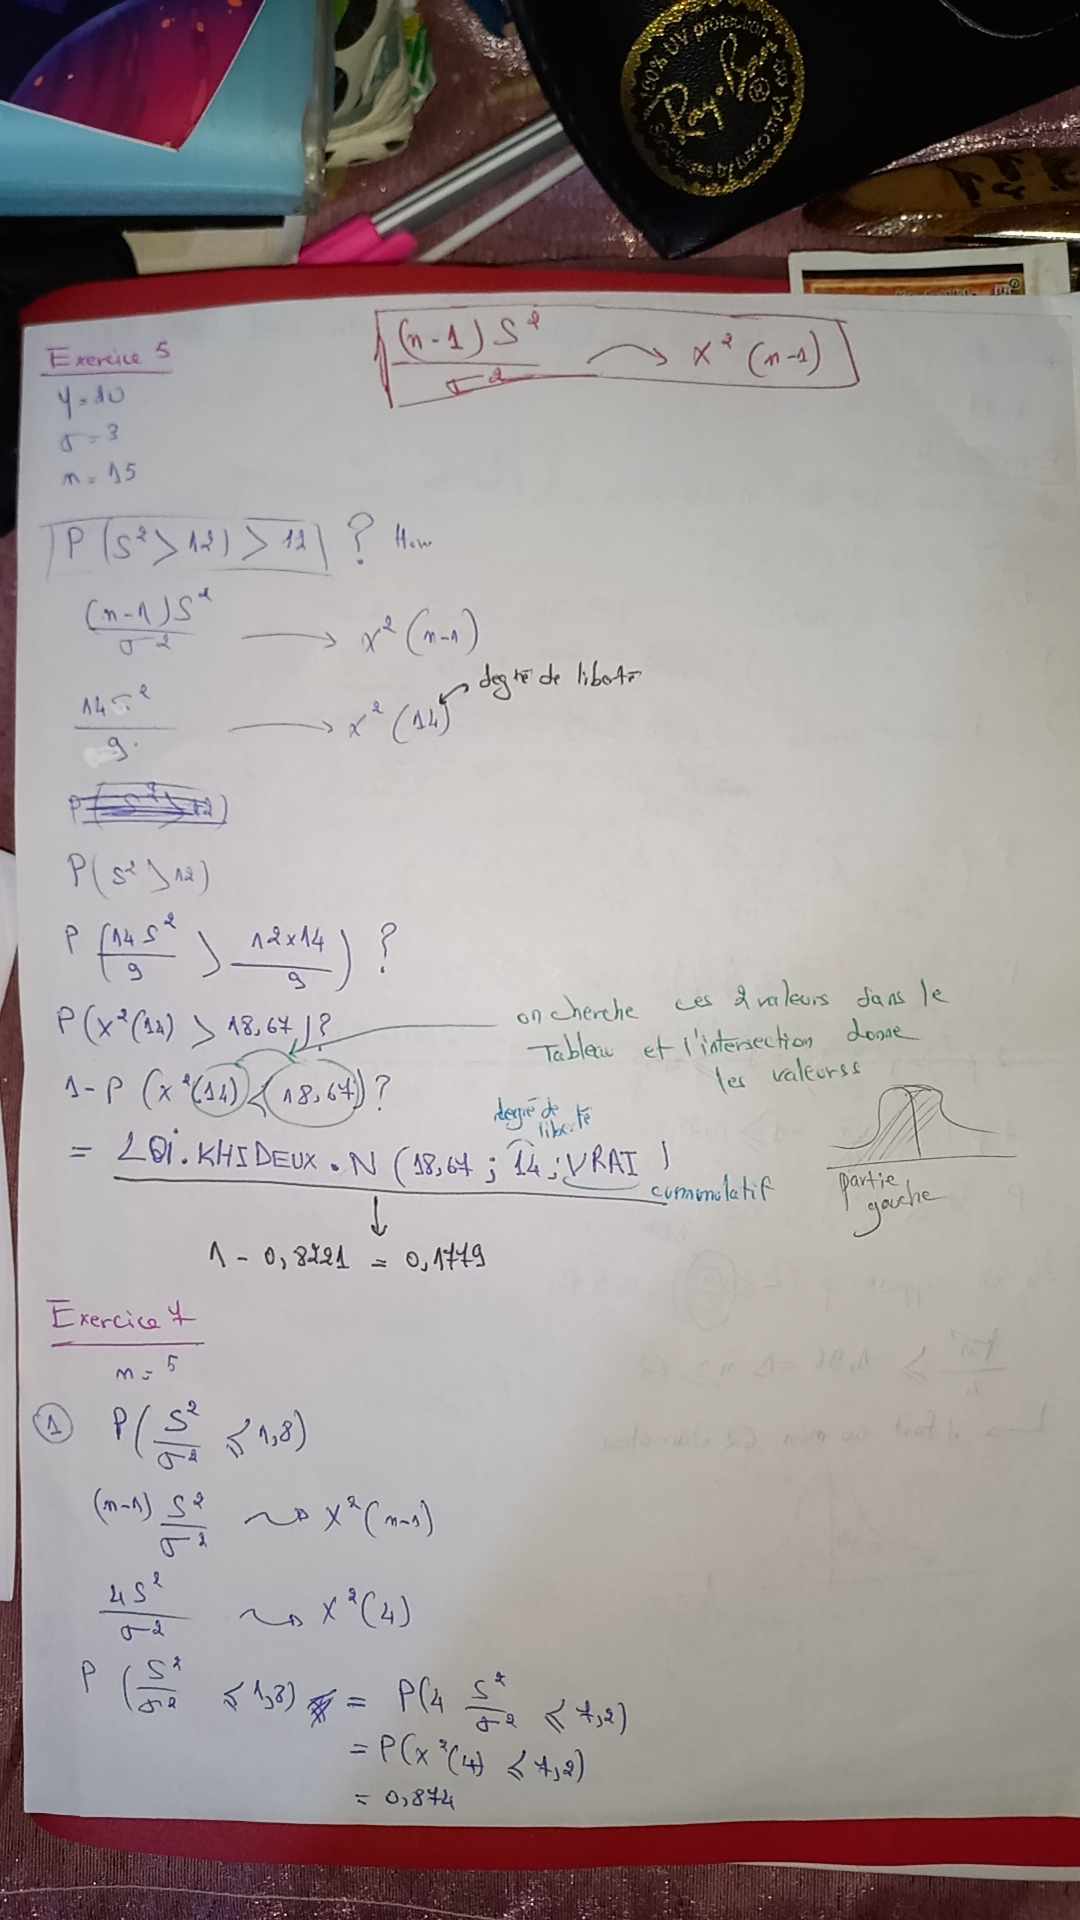 100% UV protection
Ray-Ban
Exercice 5
(n-1) S² / σ² → X² (n-1)
y = 10
σ = 3
n = 15
P (S² > 12) > 12 ? How
(n-1) S² / σ² → X² (n-1)
degré de liberté
14 σ² / 9 → X² (14)
P(S² > 12)
P (14 S² / 9 > 12x14 / 9) ?
P(X²(14) > 18,67) ?
on cherche ces 2 valeurs dans le
Tableau et l'intersection donne
les valeurss
1-P (X²(14) < 18,67) ?
degré de
liberté
= LOI.KHIDEUX.N (18,67 ; 14 ; VRAI)
cummulatif
partie
gauche
1 - 0,8221 = 0,1779
Exercice 7
n = 5
1 P( S² / σ² ⩽ 1,8)
(n-1) S² / σ² ~> X² (n-1)
4 S² / σ² ~> X² (4)
P ( S² / σ² ⩽ 1,8) = P(4 S² / σ² ⩽ 7,2)
= P(X²(4) ⩽ 7,2)
= 0,874